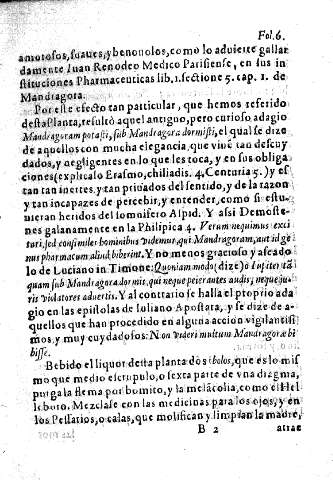 Fol.6.
amorosos, suaues, y beneuolos, como lo aduierte gallar
damente Iuan Renodeo Medico Parisiense, en sus in
stituciones Pharmaceuticas lib. 1. sectione 5. cap. 1. de
Mandragora.
Por este efecto tan particular, que hemos referido
desta Planta, resultò aquel antiguo, pero curioso adagio
Mandragoram potasti, sub Mandragora dormisti, el qual se dize
de aquellos con mucha elegancia, que viuē tan descuy
dados, y negligentes en lo que les toca, y en sus obliga
ciones (explicalo Erasmo, chiliadis. 4. Centuria 5.) y es
tan tan inertes, y tan priuados del sentido, y de la razon
y tan incapazes de percebir, y entender, como si estu-
uieran heridos del somnifero Alpid. Y assi Demoste-
nes galanamente en la Philipica 4. Verum nequimus exci
turi, sed consimiles hominibus videmur, qui Mandragoram, aut id ge
nus pharmacum aliud biberint. Y no menos gracioso y aseado
lo de Luciano in Timone: Quoniam modo (dize) o Iupiter tā
quam sub Mandragora dormis, qui neque peierantes audis, neque iu-
ris violatores aduertis. Y al contrario se halla el proprio ada
gio en las epistolas de Iuliano Apostata, y se dize de a-
quellos que han procedido en alguna accion vigilantissi
mos, y muy cuydadosos: Non videri multum Mandragoræ bi
bisse.
Bebido el liquor desta planta dos obolos, que es lo mis
mo que medio escrupulo, o sexta parte de vna dragma,
purga la flema por bomito, y la melācolia, como el Hel
leboro. Mezclase con las medicinas para los ojos, y en
los Pessarios, o calas, que molifican y limpian la madre,
B 2